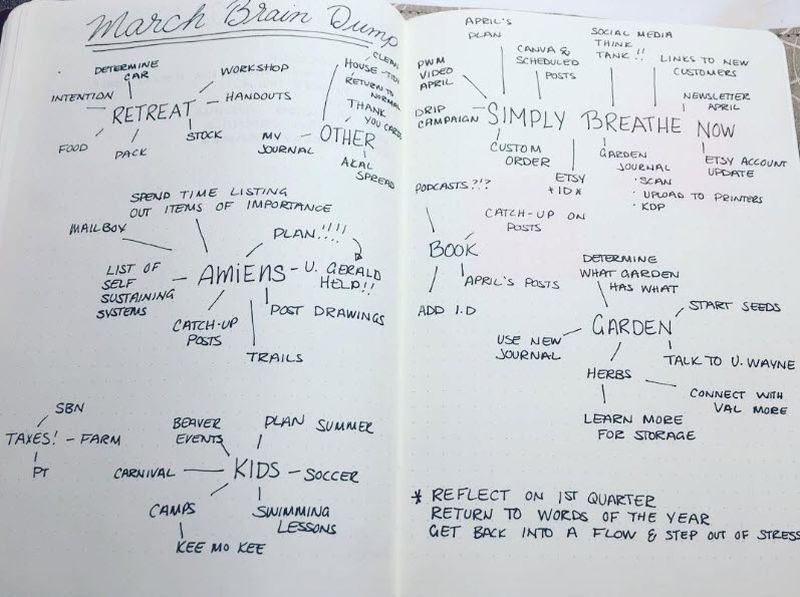 March Brain Dump
DETERMINE
CAR
WORKSHOP
INTENTION
HANDOUTS
RETREAT
FOOD
PACK
STOCK
CLEAN
HOUSE - TIDY
RETURN TO
NORMAL
THANK
YOU CARDS
OTHER
MV
JOURNAL
AKAL
SPREAD
SPEND TIME LISTING
OUT ITEMS OF IMPORTANCE
MAILBOX
PLAN!!!!
LIST OF
SELF
SUSTAINING
SYSTEMS
AMIENS - U. GERALD
HELP!!
CATCH-UP
POSTS
POST DRAWINGS
TRAILS
SBN
TAXES! - FARM
PT
BEAVER
EVENTS
PLAN SUMMER
CARNIVAL
KIDS - SOCCER
CAMPS
SWIMMING
LESSONS
KEE MO KEE
APRIL'S
PLAN
CANVA &
SCHEDULED
POSTS
SOCIAL MEDIA
THINK
TANK!!
LINKS TO NEW
CUSTOMERS
PWM
VIDEO
APRIL
NEWSLETTER
APRIL
DRIP
CAMPAIGN
SIMPLY BREATHE NOW
CUSTOM
ORDER
ETSY
+ IDX
GARDEN
JOURNAL
• SCAN
• UPLOAD TO PRINTERS
• KDP
ETSY ACCOUNT
UPDATE
PODCASTS?!?
CATCH-UP ON
POSTS
BOOK
APRIL'S POSTS
ADD I.D
DETERMINE
WHAT GARDEN
HAS WHAT
START SEEDS
GARDEN
USE NEW
JOURNAL
TALK TO U. WAYNE
HERBS
CONNECT WITH
VAL MORE
LEARN MORE
FOR STORAGE
* REFLECT ON 1ST QUARTER
RETURN TO WORDS OF THE YEAR
GET BACK INTO A FLOW & STEP OUT OF STRESS